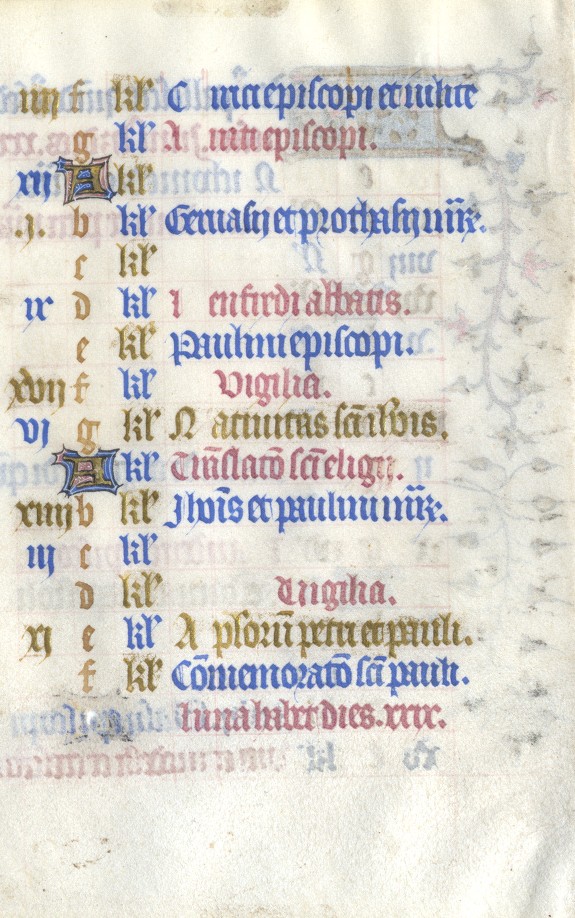 iiij f kl' Cirici episcopi et iulite
g kl' Aviti episcopi.
xij A kl'
.j. b kl' Gervasij et prothasij mr̄z.
c kl'
ix d kl' Lenfirdi abbatis.
e kl' Paulini episcopi.
xvij f kl' Vigilia.
vj g kl' Natiuitas sc̄i ih'ois.
A kl' Trāslatō sc̄i eligij.
xiiij b kl' Jhoīs et pauli mr̄z.
iij c kl'
d kl' Vigilia.
xj e kl' Aplorū petri et pauli.
f kl' Cōmemoratō sc̄i pauli.
luna habet dies .xxx.